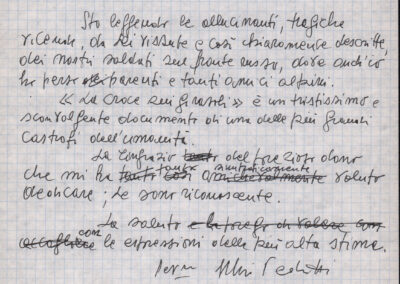 Sto leggendo le allucinanti, tragiche
vicende, da Lei vissute e così chiaramente descritte,
dei nostri soldati sul fronte russo, dove anch'io
ho perso parenti e tanti amici alpini.
« La Croce sui girasoli » è un tristissimo e
sconvolgente documento di una delle più grandi
catastrofi dell'umanità.
La ringrazio tanto del prezioso dono
che mi ha tanto così tanto simpaticamente amichevolmente voluto
dedicare; Le sono riconoscente.
La saluto e la prego di voler con
accogliere con le espressioni della più alta stima.